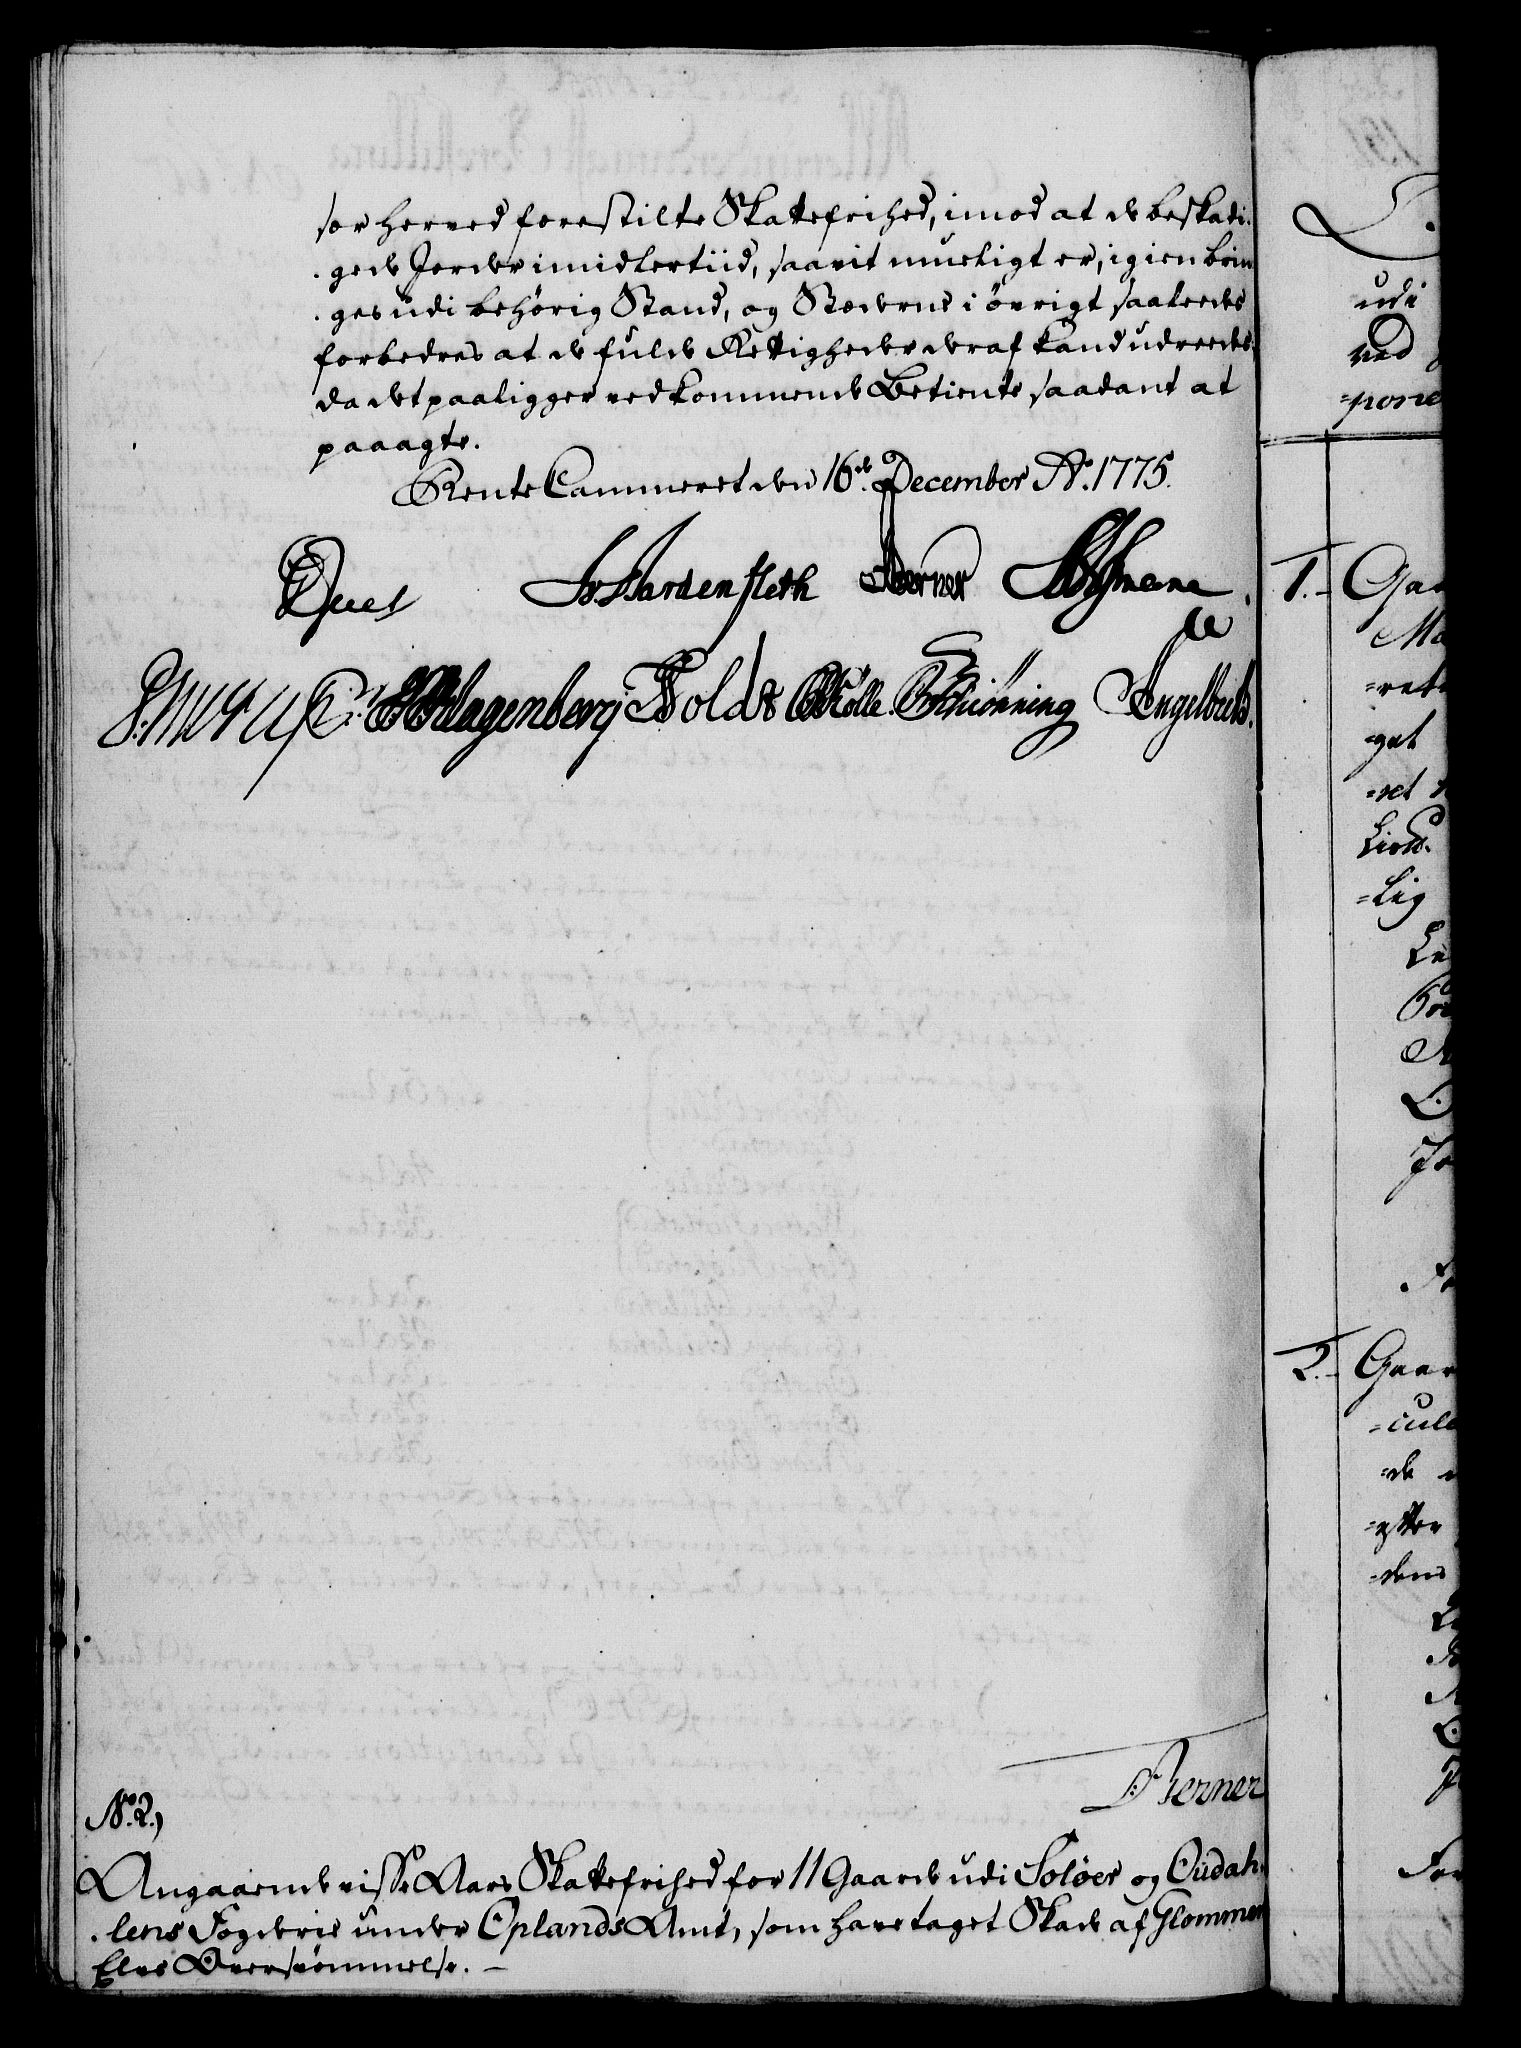 for herved forestilte Skattefrihed, imod at de beskadi-
gede Jorder imidlertiid, saavit mueligt er, igien brin-
ges udi behörig Stand, og Stæderne i övrigt saaledes
forbedres at de fulde Rettigheder deraf kand udreedes,
da det paaligger vedkommende Betiente saadant at
paaagte.
Rente Cammeret den 16de December Ao. 1775.
Juel Hardenfleth Berner
Klagenberg Holdt Rolle. Schiönning Engelbreth.
Berner
No. 2.,
Angaaende visse Aars Skattefrihed for 11 Gaarde udi Solöer og Oudah-
lens Fogderie under Oplands Amt, som have taget Skade af Glommen
Elvs Oversvömmelse. –
udi
ved
pone
1. Gaa
Ma
get
set
lig
2. Gaar
cule
de
efter
dens